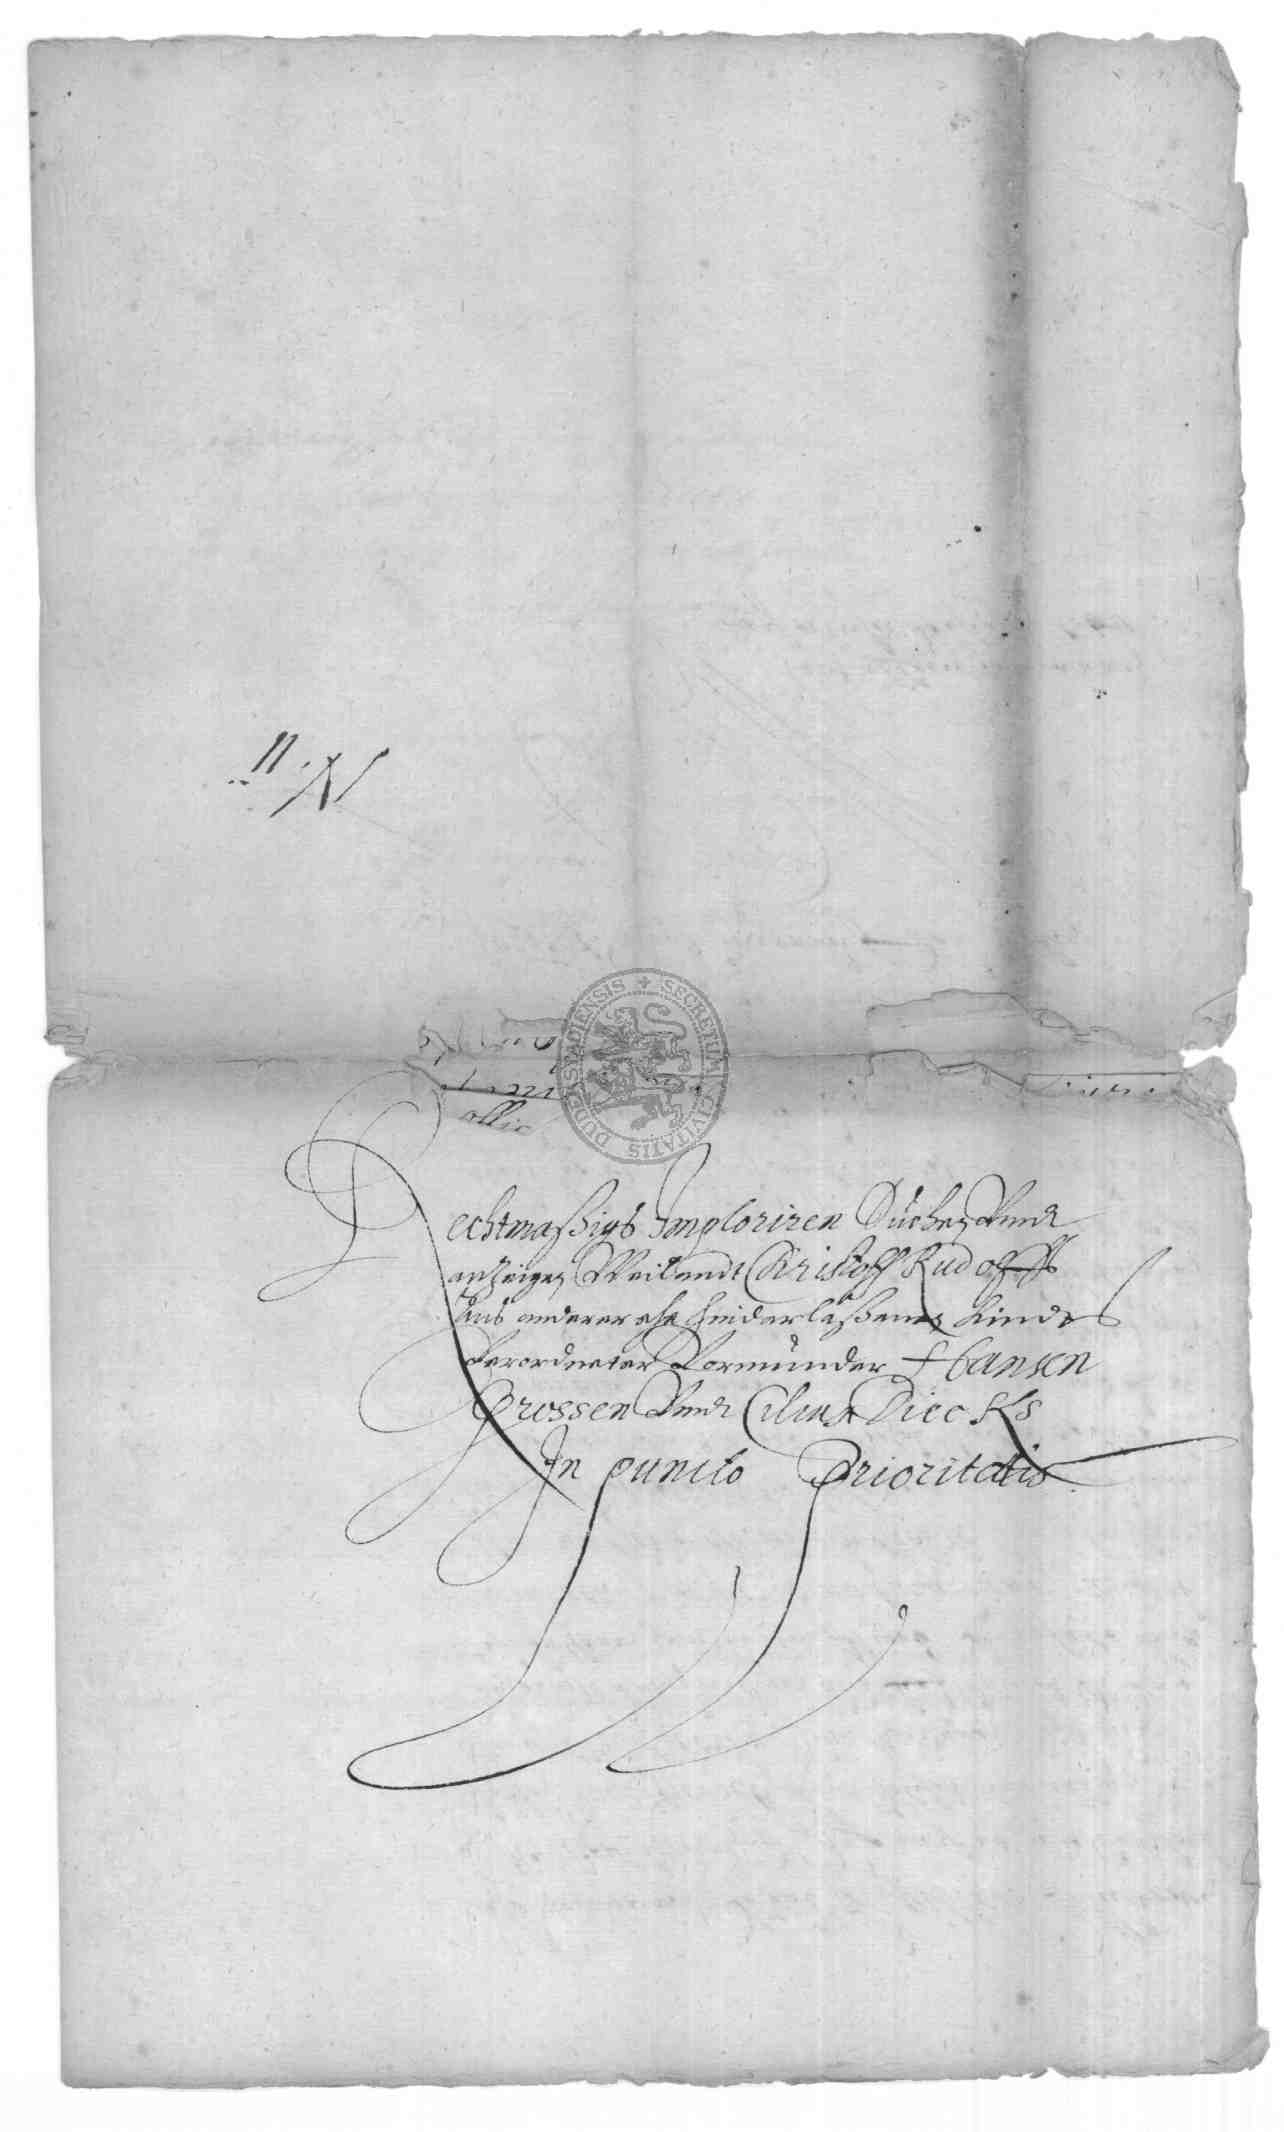 N. 11
SECRETUM CIVITATIS DUDERSTADIENSIS
Rechtmaßigs Imploriren Suchen Vnndt
anZeigen Weilandt Christoff Rudolffs
aus anderer ehe hinderlaßenen Kinder
Verordneter Vormünder Hansen
Grossen Vnndt Diecks
In puncto Prioritatis